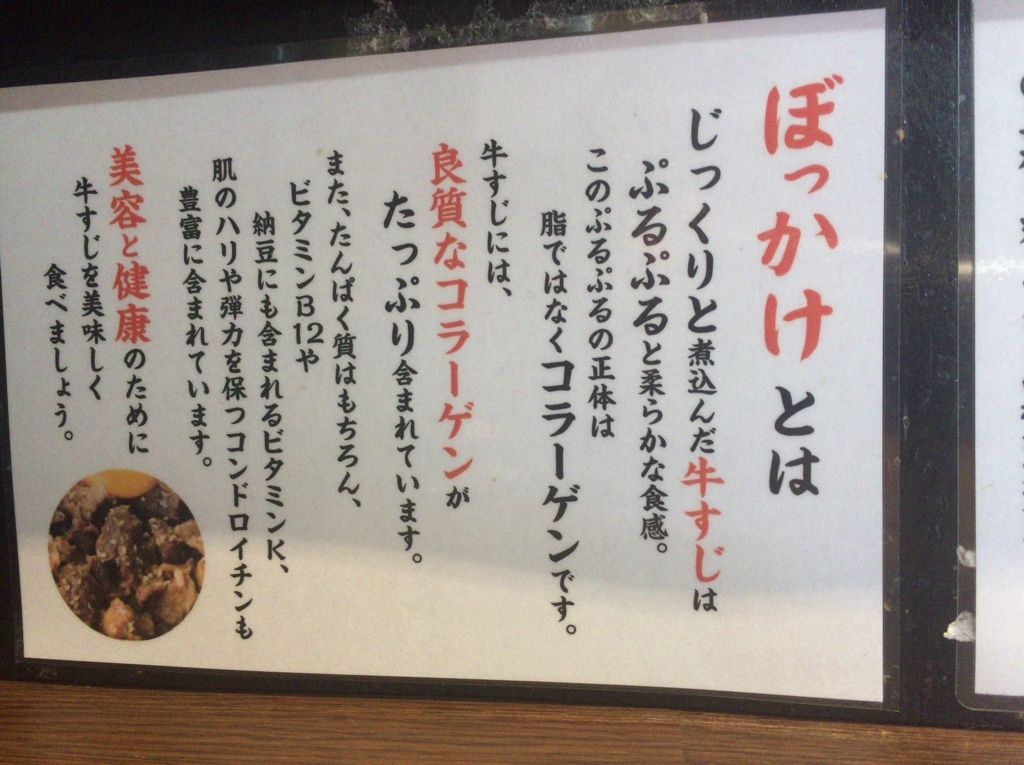 ぼっかけとは
じっくりと煮込んだ牛すじは
ぷるぷると柔らかな食感。
このぷるぷるの正体は
脂ではなくコラーゲンです。
牛すじには、
良質なコラーゲンが
たっぷり含まれています。
また、たんぱく質はもちろん、
ビタミンB12や
納豆にも含まれるビタミンK、
肌のハリや弾力を保つコンドロイチンも
豊富に含まれています。
美容と健康のために
牛すじを美味しく
食べましょう。